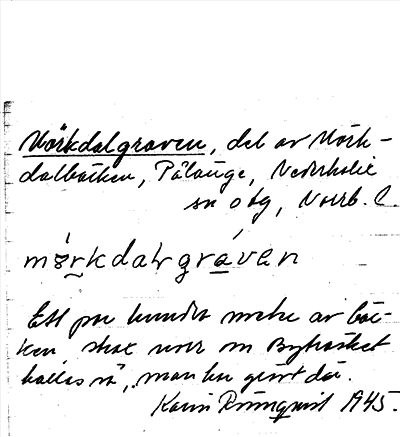 Mörkdalgraven, del av Mörk-
dalbäcken, Pålänge, Nederkalix
sn o tg, Norrb. l.
mörkdalgráven
Ett par hundra meter av bäc-
ken strax norr om Byträsket
kallas så, man har grävt där.
Karin Rönnquist 1945.